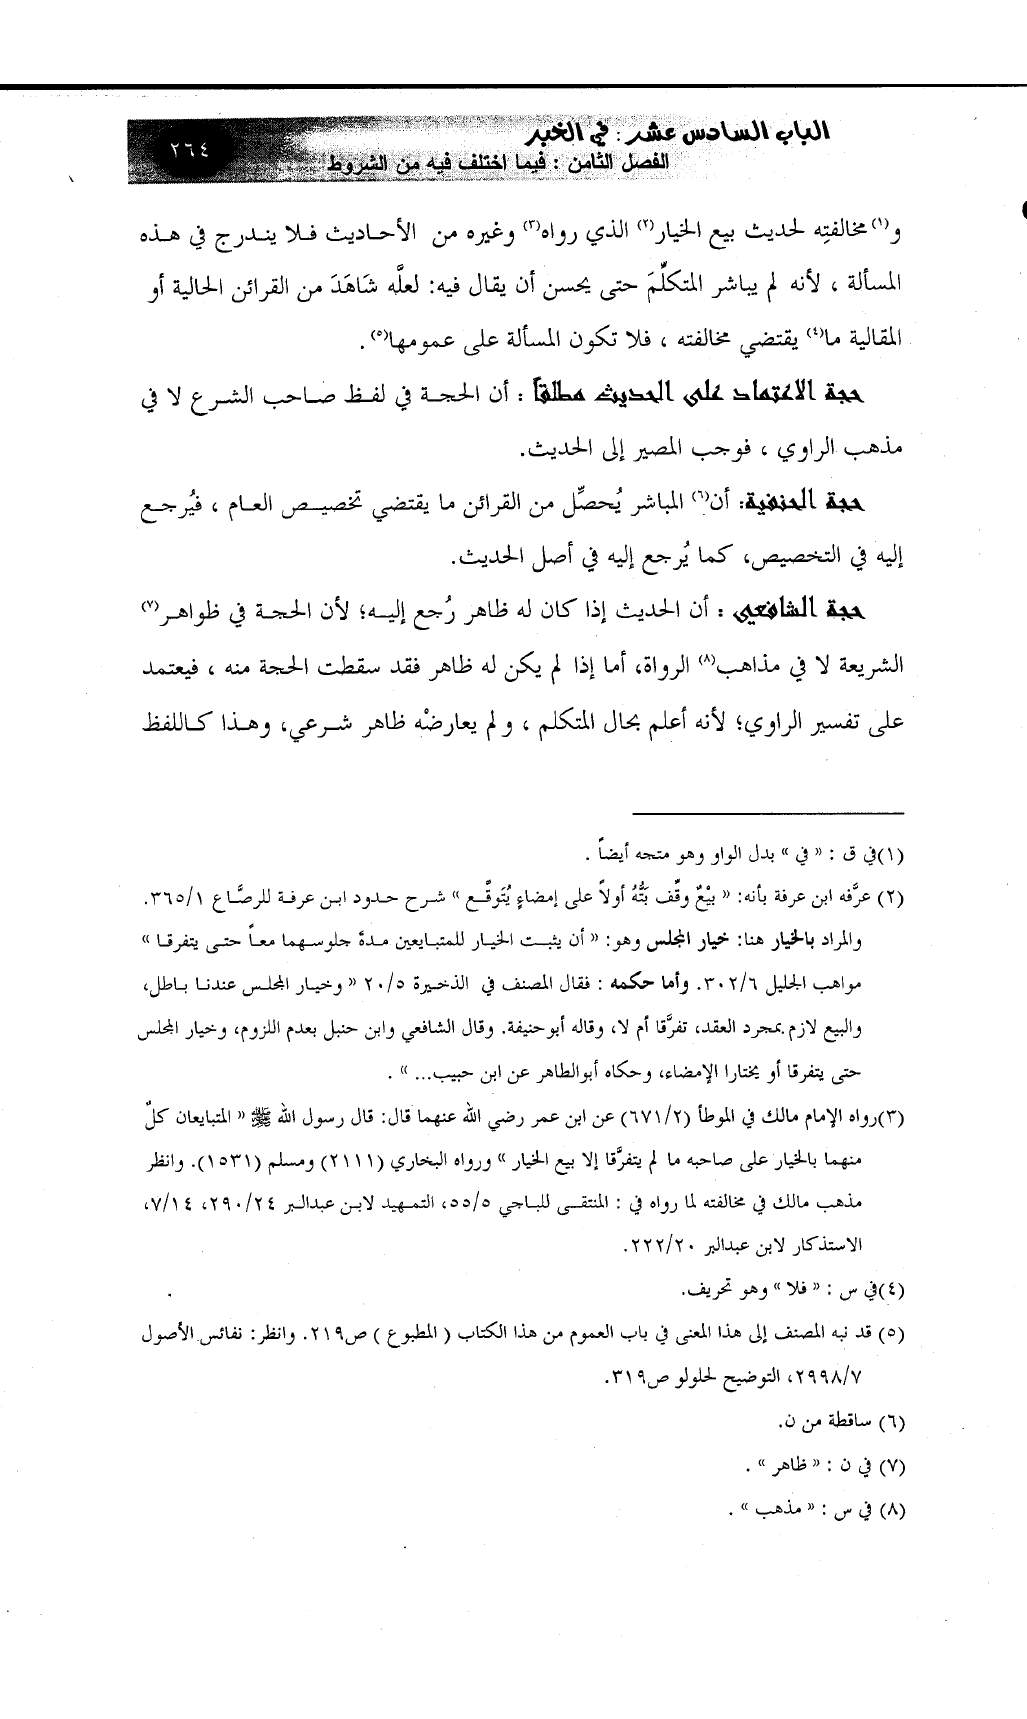 الباب السادس عشر : في الخبر
الفصل الثامن : فيما اختلف فيه من الشروط
٢٦٤
و(١) مخالفتِه لحديث بيع الخيار(٢) الذي رواه(٣) وغيره من الأحاديث فلا يندرج في هذه
المسألة ، لأنه لم يباشر المتكلِّمَ حتى يحسن أن يقال فيه: لعلَّه شَاهَدَ من القرائن الحالية أو
المقالية ما(٤) يقتضي مخالفته ، فلا تكون المسألة على عمومها(٥) .
حجة الاعتماد على الحديث مطلقاً : أن الحجة في لفظ صاحب الشرع لا في
مذهب الراوي ، فوجب المصير إلى الحديث.
حجة الحنفية: أن(٦) المباشر يُحصِّل من القرائن ما يقتضي تخصيص العام ، فيُرجع
إليه في التخصيص، كما يُرجع إليه في أصل الحديث.
حجة الشافعي : أن الحديث إذا كان له ظاهر رُجع إليه؛ لأن الحجة في ظواهر(٧)
الشريعة لا في مذاهب(٨) الرواة، أما إذا لم يكن له ظاهر فقد سقطت الحجة منه ، فيعتمد
على تفسير الراوي؛ لأنه أعلم بحال المتكلم ، ولم يعارضْه ظاهر شرعي، وهذا كاللفظ
(١)في ق : « في » بدل الواو وهو متجه أيضاً .
(٢) عرَّفه ابن عرفة بأنه: « بيْعٌ وقِّف بَتُّهُ أولاً على إمضاءٍ يُتَوقَّع » شرح حدود ابن عرفة للرصَّاع ٣٦٥/١.
والمراد بالخيار هنا: خيار المجلس وهو: « أن يثبت الخيار للمتبايعين مدة جلوسهما معاً حتى يتفرقا »
مواهب الجليل ٣٠٢/٦. وأما حكمه : فقال المصنف في الذخيرة ٢٠/٥ « وخيار المجلس عندنا باطل،
والبيع لازم بمجرد العقد، تفرَّقا أم لا، وقاله أبوحنيفة. وقال الشافعي وابن حنبل بعدم اللزوم، وخيار المجلس
حتى يتفرقا أو يختارا الإمضاء، وحكاه أبوالطاهر عن ابن حبيب... » .
(٣)رواه الإمام مالك في الموطأ (٦٧١/٢) عن ابن عمر رضي الله عنهما قال: قال رسول الله ﷺ « المتبايعان كلٌ
منهما بالخيار على صاحبه ما لم يتفرَّقا إلا بيع الخيار » ورواه البخاري (٢١١١) ومسلم (١٥٣١). وانظر
مذهب مالك في مخالفته لما رواه في : المنتقى للباجي ٥٥/٥، التمهيد لابن عبدالبر ٢٩٠/٢٤، ٧/١٤،
الاستذكار لابن عبدالبر ٢٢٢/٢٠.
(٤)في س : « فلا » وهو تحريف.
(٥) قد نبه المصنف إلى هذا المعنى في باب العموم من هذا الكتاب ( المطبوع ) ص٢١٩. وانظر: نفائس الأصول
٢٩٩٨/٧، التوضيح لحلولو ص٣١٩.
(٦) ساقطة من ن.
(٧) في ن : « ظاهر » .
(٨) في س : « مذهب » .